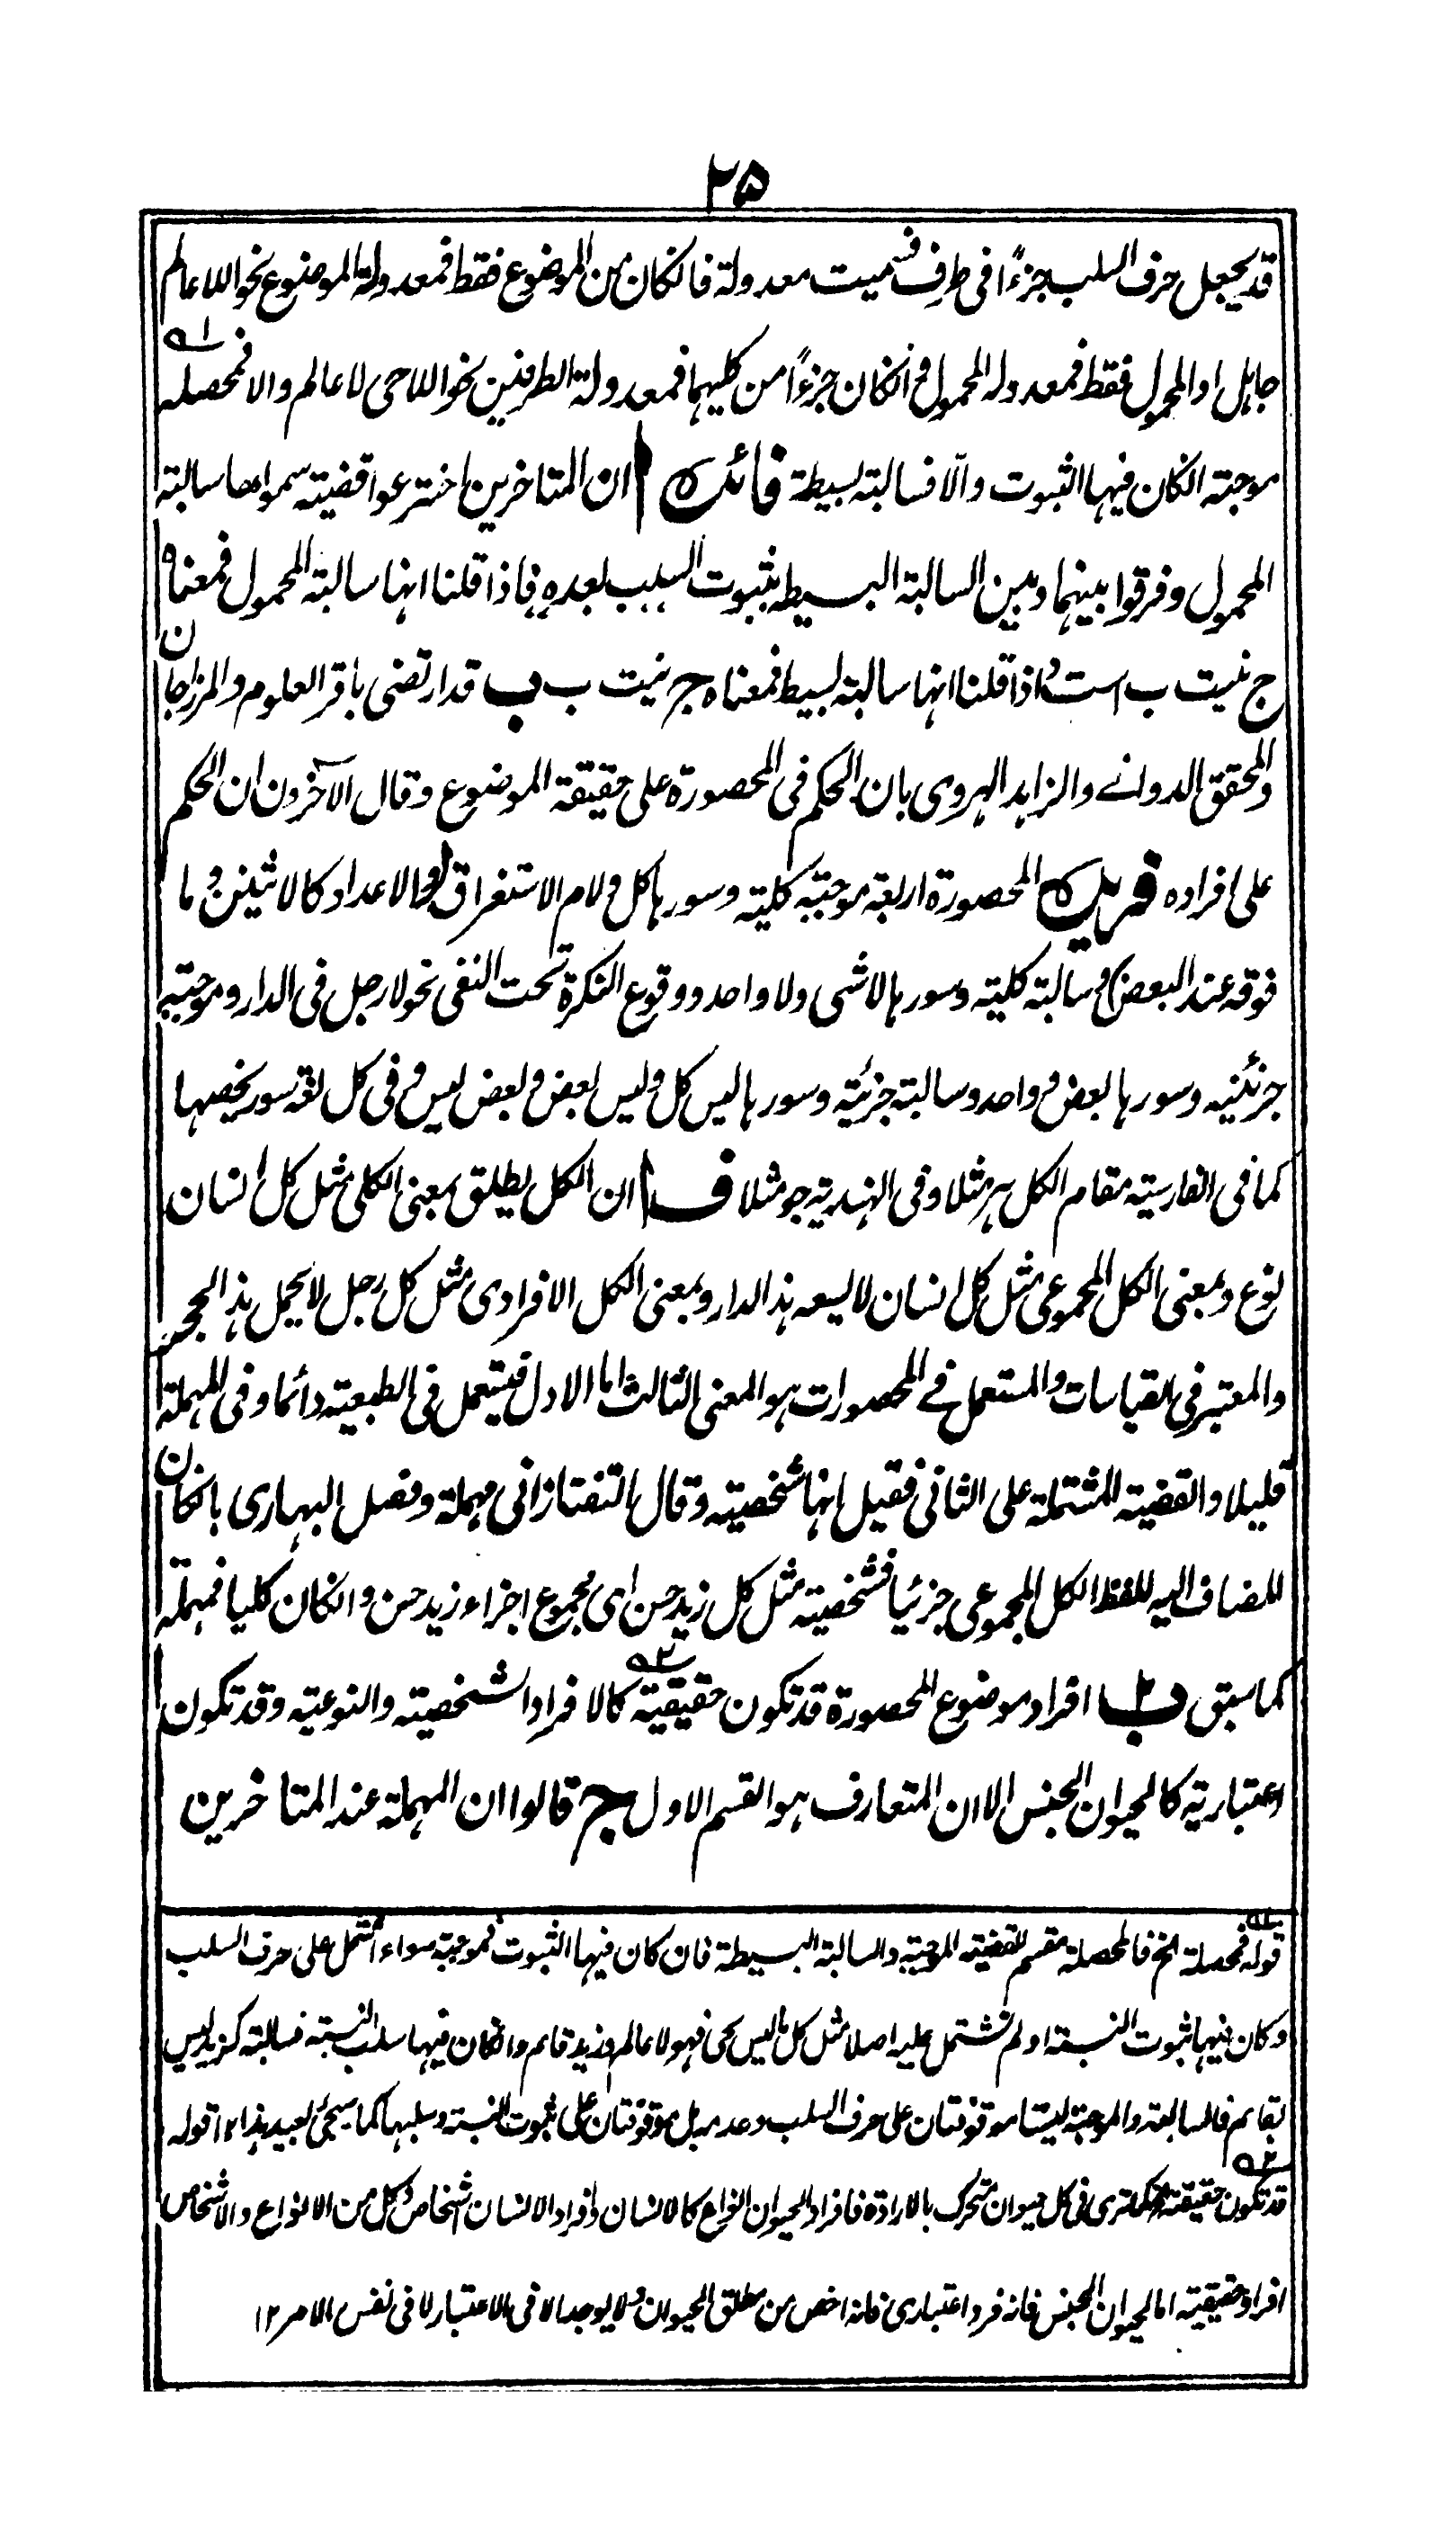 ۲۵
قد يجعل حرف السلب جزءًا فى طرف فسميت معدولة فانكان من الموضوع فقط فمعدولة الموضوع نحو اللاعالم
جاہل او المحمول فقط فمعدولہ المحمول و انكان جزءًا من كليهما فمعدولة الطرفين نحو اللاحى لا عالم والا فمحصلہ ۱ه
موجبتہ انكان فيها الثبوت والّا فسالبتہ بسيطة فائدہ ا ان المتاخرين اخترعوا قضيتہ سموها سالبتہ
المحمول و فرقوا بينهما و بين السالبة البسيطہ بثبوت السلب بعدہ فاذا قلنا انها سالبتہ المحمول فمعناہ
ج نيست ب است و اذا قلنا انها سالبتہ بسيط فمعناہ ج نيست ب ب قد ارتضى باقر العلوم و المرزاجان
والمحقق الدوانے والزاہد الہروى بان الحكم فى المحصورة على حقيقة الموضوع وقال الآخرون ان الحكم
على افرادہ فريدہ المحصورة اربعة موجبتہ كليتہ و سورہا كل و لام الاستغراق و الاعداد كالاثنين و ما
فوقہ عند البعض و سالبتہ كليتہ و سورہا لاشى ولا واحد و وقوع النكرة تحت النفى نحو لا رجل فى الدار و موجبتہ
جزئيتہ و سورہا بعض و واحد و سالبتہ جزئيتہ و سورہا ليس كل و ليس بعض و بعض ليس و فى كل لغة سور يخصها
كما فى الفارسيتہ مقام الكل ہر مثلا و فى الہنديتہ جو مثلا ف ا ان الكل يطلق بمعنى الكلى مثل كل انسان
نوع و بمعنى الكل المجموعى مثل كل انسان لا يسعہ ہذا الدار و بمعنى الكل الافرادى مثل كل رجل لا يحمل ہذا الحجر
والمعتبر فى القياسات والمستعمل فے المحصورات ہو المعنى الثالث اما الاول فيستعمل فى الطبعيتہ دائما و فى المہملة
قليلا والقضيتہ المشتملة على الثانى فقيل انها شخصيتہ وقال التفتازانى مہملة و فصل البہارى بانكان
المضاف اليہ للفظ الكل المجموعى جزئيا فشخصيتہ مثل كل زيد حسن اى مجموع اجزاء زيد حسن و انكان كليا فمہملة
كما سبق ب ۲ افراد موضوع المحصورة قد تكون حقيقيتہ ۲ه كالافراد الشخصيتہ والنوعيتہ وقد تكون
اعتباريتہ كالحيوان الجنس الا ان المتعارف ہو القسم الاول ج قالوا ان المہملة عند المتاخرين
۱ه قولہ فمحصلة الخ فالمحصلة مقسم للقضيتہ الموجبتہ والسالبتہ البسيطة فان كان فيها الثبوت فموجبتہ سواء اشتمل على حرف السلب
وكان فيها ثبوت النسبتہ او لم تشتمل عليہ اصلا مثل كل ما ليس بحى فهو لا عالم و زيد قائم و انكان فيها سلب النسبتہ فسالبتہ كزيد ليس
بقائم فالسالبتہ والموجبتہ ليستا موقوفتان على حرف السلب و عدمہ بل موقوفتان على ثبوت النسبتہ و سلبها كما سيجئ بعيد ہذا ۱۲ قولہ
۲ه قد تكون حقيقتہ كما ترى فى كل حيوان متحرك بالارادة فافراد الحيوان انواع كالانسان و افراد الانسان اشخاص و كل من الانواع والاشخاص
افراد حقيقيتہ اما الحيوان الجنس فانہ فرد اعتبارى فانہ اخص من مطلق الحيوان ولا يوجد الا فى الاعتبار لا فى نفس الامر ۱۲